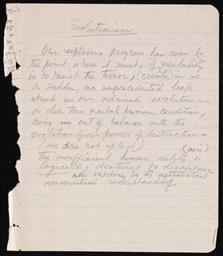 Evolutionism
Our explosive progress has come to
the point where it must, if mentality
is to resist the terror, (create) in us
a sudden, an unprecedented leap
ahead in our ordained evolution —
or else this mental human condition,
being in out of balance with the
evolution of our power of destruction —
(we are not up to ) (axis)
the insufficient human entity is
logically destined to disappear
now by its
nonspiritual understanding